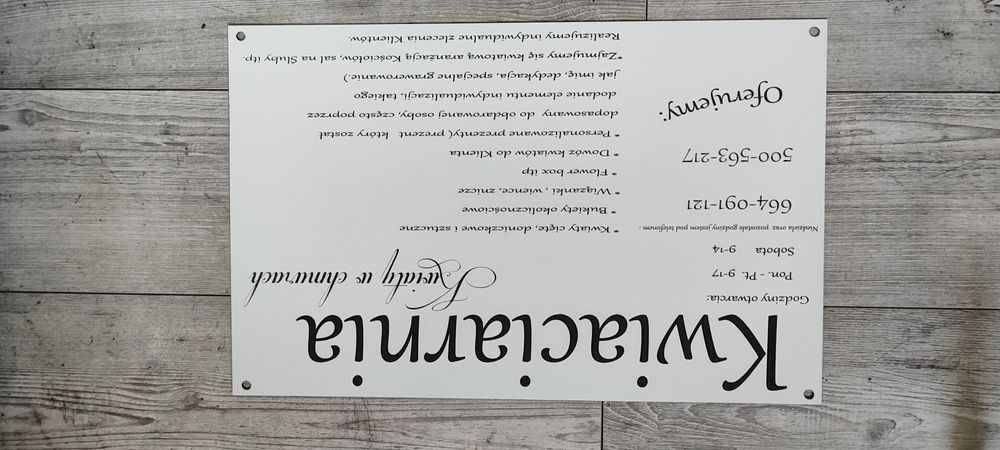 Kwiaciarnia
Kwiaty w chmurach
Godziny otwarcia:
Pon. - Pt. 9-17
Sobota 9-14
Niedziela oraz pozostałe godziny jestem pod telefonem :
664-091-121
500-563-217
Oferujemy:
* Kwiaty cięte, doniczkowe i sztuczne
* Bukiety okolicznościowe
* Wiązanki , wience, znicze
* Flower box itp
* Dowóz kwiatów do Klienta
* Personalizowane prezenty( prezent który został
dopasowany do obdarowanej osoby, często poprzez
dodanie elementu indywidualizacji, takiego
jak imię, dedykacja, specjalne grawerowanie).
*Zajmujemy się kwiatową aranżacją Kościołów, sal na Śluby itp.
Realizujemy indywidualne zlecenia Klientów.